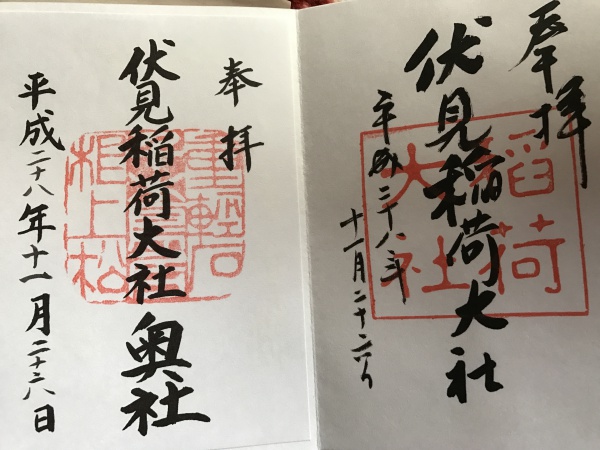 奉拝
稲荷
大社
伏見稲荷大社
平成二十八年
十一月二十六日
奉拝
重軽石
伏見稲荷大社 奥社
根上松
平成二十八年十一月二十六日